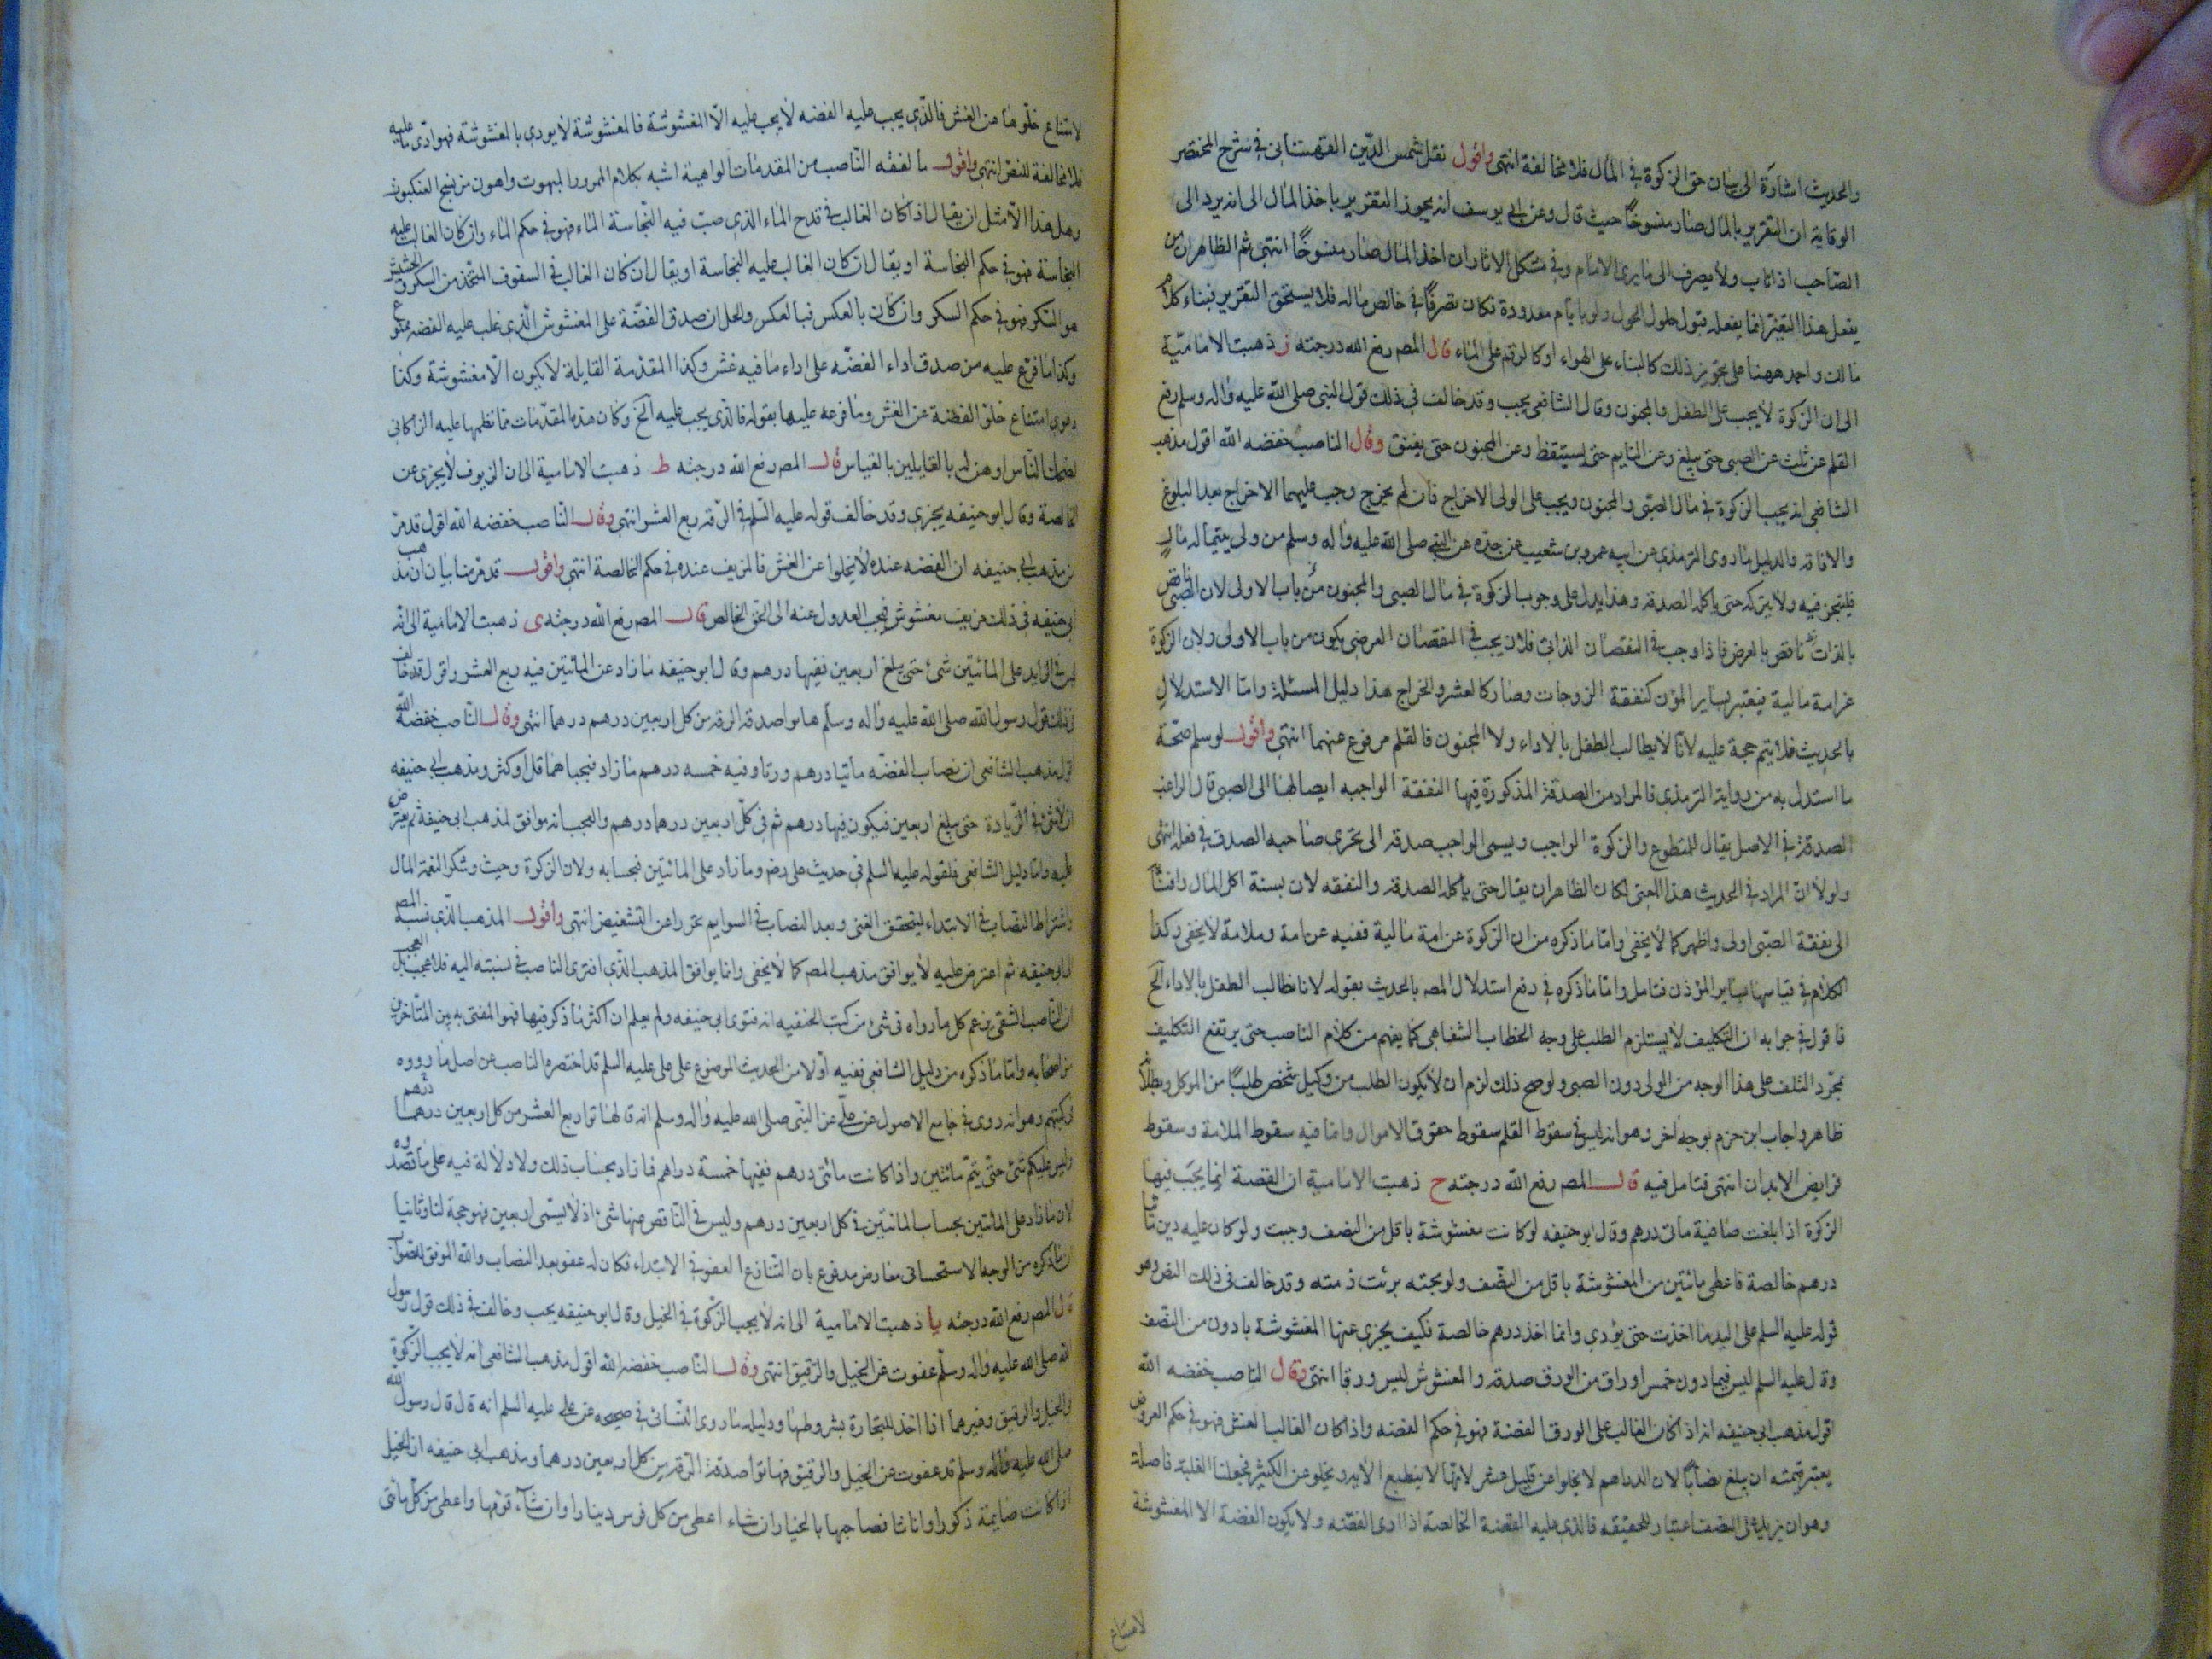 والحديث اشارة الى بيان حق الزكوة في المال فلا مخالفة انتهى واقول نقل شمس الدين القهستانى في شرح المختصر
الوقاية ان التقرير بالمال صار منسوخا حيث قال وعن ابى يوسف انه يجوز التقرير باخذ المال الى انه يرد الى
الصاحب اذا تاب ولا يصرف الى ما يرى الامام وفي مشكل الاثار ان اخذ المال صار منسوخا انتهى ثم الظاهر ان من
يفعل هذا التغير انما يفعله قبول حلول الحول ولو بايام معدودة فكان تصرفا في خالص ماله فلا يستحق التقرير فبناء كلام
مالك واحمد ههنا على تجويز ذلك كالبناء على الهواء او كالرقم على الماء قال المصه رفع الله درجته ز ذهبت الامامية
الى ان الزكوة لا يجب على الطفل والمجنون وقال الشافعى يجب وقد خالف في ذلك قول النبى صلى الله عليه واله وسلم رفع
القلم عن ثلث عن الصبى حتى يبلغ وعن النايم حتى يستيقظ وعن المجنون حتى يفيق وقال الناصب خفضه الله اقول مذهب
الشافعى انه يجب الزكوة في مال الصبى والمجنون ويجب على الولى الاخراج فان لم يخرج وجب عليهما الاخراج بعد البلوغ
والافاقه والدليل ما روى الترمذى عن ابيه عمرو بن شعيب عن جده عن النبى صلى الله عليه واله وسلم من ولى يتيما له مال
فليتجر فيه ولا يتركه حتى ياكله الصدقه وهذا يدل على وجوب الزكوة في مال الصبى والمجنون من باب الاولى لان الصبى ناقص
بالذات ناقص بالعرض فاذا وجب في النقصان الذاتى فلان يجب في النقصان العرضى يكون من باب الاولى ولان الزكوة
غرامة مالية فيعتبر بساير المؤن كنفقة الزوجات وصار كالعشر والخراج هذا دليل المسئلة واما الاستدلال
بالحديث فلا يتم حجة عليه لانا لا يطالب الطفل بالاداء ولا المجنون فالقلم مرفوع عنهما انتهى واقول لو سلم صحة
ما استدل به من رواية الترمذى فالمراد من الصدقة المذكورة فيها النفقة الواجبه ايصالها الى الصبى قال الراغب
الصدقة في الاصل يقال للمتطوع والزكوة الواجب ويسمى الواجب صدقه الى تحرى صاحبه الصدق في فعله انتهى
ولولا ان المراد في الحديث هذا المعنى لكان الظاهر ان يقال حتى ياكله الصدقه والنفقه لان بسنة اكل المال
الى نفقة الصبى اولى واظهر كما لا يخفى واما ما ذكره من ان الزكوة غرامة مالية ففيه غرامة وملامة لا يخفى وكذا
الكلام في قياسها بساير المؤن فتامل واما ما ذكره في دفع استدلال المصه بالحديث بقوله لانا نطالب الطفل بالاداء الخ
فاقول في جوابه ان التكليف لا يستلزم الطلب على وجه الخطاب الشفاهى كما يفهم من كلام الناصب حتى يرتفع التكليف
بمجرد التلف على هذا الوجه من الولى دون الصبى ولو صح ذلك لزم ان لا يكون الطلب من وكيل شخص طلبا من الموكل وبطلانه
ظاهر واجاب ابن حزم بوجه اخر وهو انه ليس في سقوط القلم سقوط حقوق الاموال وانما فيه سقوط الملامة وسقوط
فرايض الابدان انتهى فتامل فيه قال المصه رفع الله درجته ح ذهبت الامامية ان الفضة انما يجب فيها
الزكوة اذا بلغت صافية ماتى درهم وقال ابو حنيفه لو كانت مغشوشة باقل من النصف وجبت ولو كان عليه دين ماتا
درهم خالصة فاعطى مائتين من المغشوشة باقل من النصف ولو بجته برئت ذمته وقد خالف في ذلك النص وهو
قوله عليه السلم على اليد ما اخذت حتى يؤدى وانما اخذ درهم خالصة فكيف يجزى عنها المغشوشة بادون من النصف
وقال عليه السلم ليس فيما دون خمس اوراق من الورق صدقه والمغشوش ليس ورقا انتهى وقال الناصب خفضه الله
اقول مذهب ابى حنيفه انه اذا كان الغالب على الورق الفضة فهو في حكم الفضه واذا كان الغالب الغش فهو في حكم العروض
يعتبر قيمته ان يبلغ نصابا لان الدراهم لا يخلوا عن قليل غش لانها لا ينطبع الا به ويخلو عن الكثير فجعلنا الغلبة فاصلة
وهو ان يزيد على النصف اعتبار للحقيقه فالذى عليه الفضة الخالصه اذا ادى الفضه ولا يكون الفضة الا المغشوشة
لامتناع
لامتناع خلوها من الغش فالذى يجب عليه الفضه لا يجب عليه الا المغشوشة فالمغشوشة لا يودى بالمغشوشة فهو ادى ما عليه
فلا مخالفة للنص انتهى واقول ما لفقه الناصب من المقدمات الواهية اشبه بكلام الممرور المبهوت واهون من نسج العنكبوت
وهل هذا الا مثل ان يقال اذا كان الغالب في قدح الماء الذى صب فيه النجاسة الماء فهو في حكم الماء وان كان الغالب عليه
النجاسة فهو في حكم النجاسة او يقال ان كان الغالب عليه النجاسة او يقال ان كان الغالب في السفوف المتخذ من السكر والحشيش
هو السكر فهو في حكم السكر وان كان بالعكس فبالعكس والحل ان صدق الفضة على المغشوش الذى غلب عليه الفضه ممنوع
وكذا ما فرع عليه من صدق اداء الفضه على اداء ما فيه غش وكذا المقدمة القايلة لا يكون الا مغشوشة وكذا
دعوى امتناع خلو الفضة عن الغش وما فرعه عليها بقوله فالذى يجب عليه الخ وكان هذه المقدمات مما نظمها عليه
المصه رفع الله درجته ط ذهبت الامامية الى ان الزيوف لا يجزى عن
الخالصة وقال ابو حنيفه يجزى وقد خالف قوله عليه السلم في الرقة ربع العشر انتهى وقال الناصب خفضه الله اقول قد مر
من مذهب ابى حنيفه ان الفضه عنده لا يخلوا عن الغش فالمزيف عنده في حكم الخالصة انتهى واقول قد مر منا بيان ان مذهب
ابى حنيفه في ذلك مزيف مغشوش فيجب العدول عنه الى الحق الخالص قال المصه رفع الله درجته ى ذهبت الامامية الى انه
ليس في الزايد على المائتين شئ حتى يبلغ اربعين ففيها درهم وقال ابو حنيفه ما زاد عن المائتين فيه ربع العشر واقول قد خالف
في ذلك قول رسول الله صلى الله عليه واله وسلم هاتوا صدقة الرقة من كل اربعين درهم درهما انتهى وقال الناصب خفضه الله
اقول مذهب الشافعى ان نصاب الفضه ماتيا درهم ورقا وفيه خمسه درهم ما زاد فبحسابهما قل او كثر ومذهب ابى حنيفه
ان لا شئ في الزيادة حتى يبلغ اربعين فيكون فيها درهم ثم في كل اربعين درهما درهم والعجب انه موافق لمذهب ابى حنيفة ثم يعترض
عليه واما دليل الشافعى فلقوله عليه السلم في حديث على رض وما زاد على المائتين فبحسابه ولان الزكوة وجبت شكر النعمة المال
واشتراط النصاب في الابتداء ليتحقق الغنى وبعد النصاب في السوايم تحررا عن التشقيص انتهى واقول المذهب الذى نسبه المصه
الى ابى حنيفه ثم اعترض عليه لا يوافق مذهب المصه كما لا يخفى وانما يوافق المذهب الذى افترى الناصب في نسبته اليه فلا عجب بل العجب
ان الناصب الشقى يزعم كل ما رواه في شئ من كتب الحنفيه انه فتوى ابى حنيفه ولم يعلم ان اكثر ما ذكر فيها فهو المفتى به بين المتاخرين
من اصحابه واما ما ذكره من دليل الشافعى ففيه اولا من الحديث الموضوع على على عليه السلم قد اختصره الناصب عن اصل ما رووه
في كتبهم وهو انه روى في جامع الاصول عن على عن النبى صلى الله عليه واله وسلم انه قال هاتوا ربع العشر من كل اربعين درهما درهم
وليس عليكم شئ حتى يتم مائتين واذا كانت مائتى درهم ففيها خمسة دراهم فما زاد بحساب ذلك ولا دلالة فيه على ما قصده
لان ما زاد على المائتين بحساب المائتين في كل اربعين درهم وليس في الناقص منها شئ اذ لا يسمى اربعين فهو حجة لنا وثانيا
ان ما ذكره من الوجه الاستحسانى معارض مدفوع بان التنازع العفو في الابتداء فكان له عفو بعد النصاب والله الموفق للصواب
قال المصه رفع الله درجته يا ذهبت الامامية الى انه لا يجب الزكوة في الخيل وقال ابو حنيفه يجب وخالف في ذلك قول رسول
الله صلى الله عليه واله وسلم عفوت عن الخيل والرقيق انتهى وقال الناصب خفضه الله اقول مذهب الشافعى انه لا يجب الزكوة
في الخيل والرقيق وغيرهما اذا اتخذ للتجارة بشروطها ودليله ما روى النسائى في صحيحه عن على عليه السلم انه قال قال رسول الله
صلى الله عليه واله وسلم قد عفوت عن الخيل والرقيق فهاتوا صدقة الرقه من كل اربعين درهما ومذهب ابى حنيفه ان الخيل
اذا كانت سايمة ذكورا واناثا فصاحبها بالخيار ان شاء اعطى من كل فرس دينارا وان شاء قومها واعطى من كل مائتى